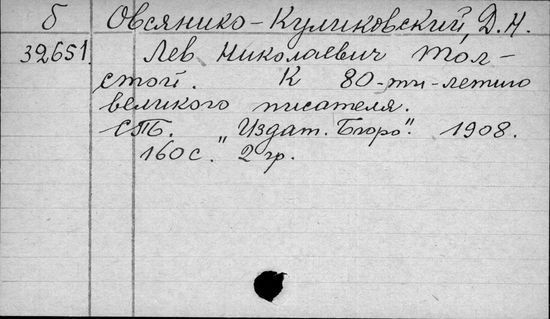 б Овсянико-Куликовский, Д.Н.
32651. Лев Николаевич Тол-
стой. К 80-ти-летию
великого писателя.
СПБ. "Издат. Бюро". 1908.
160 с. 2 гр.